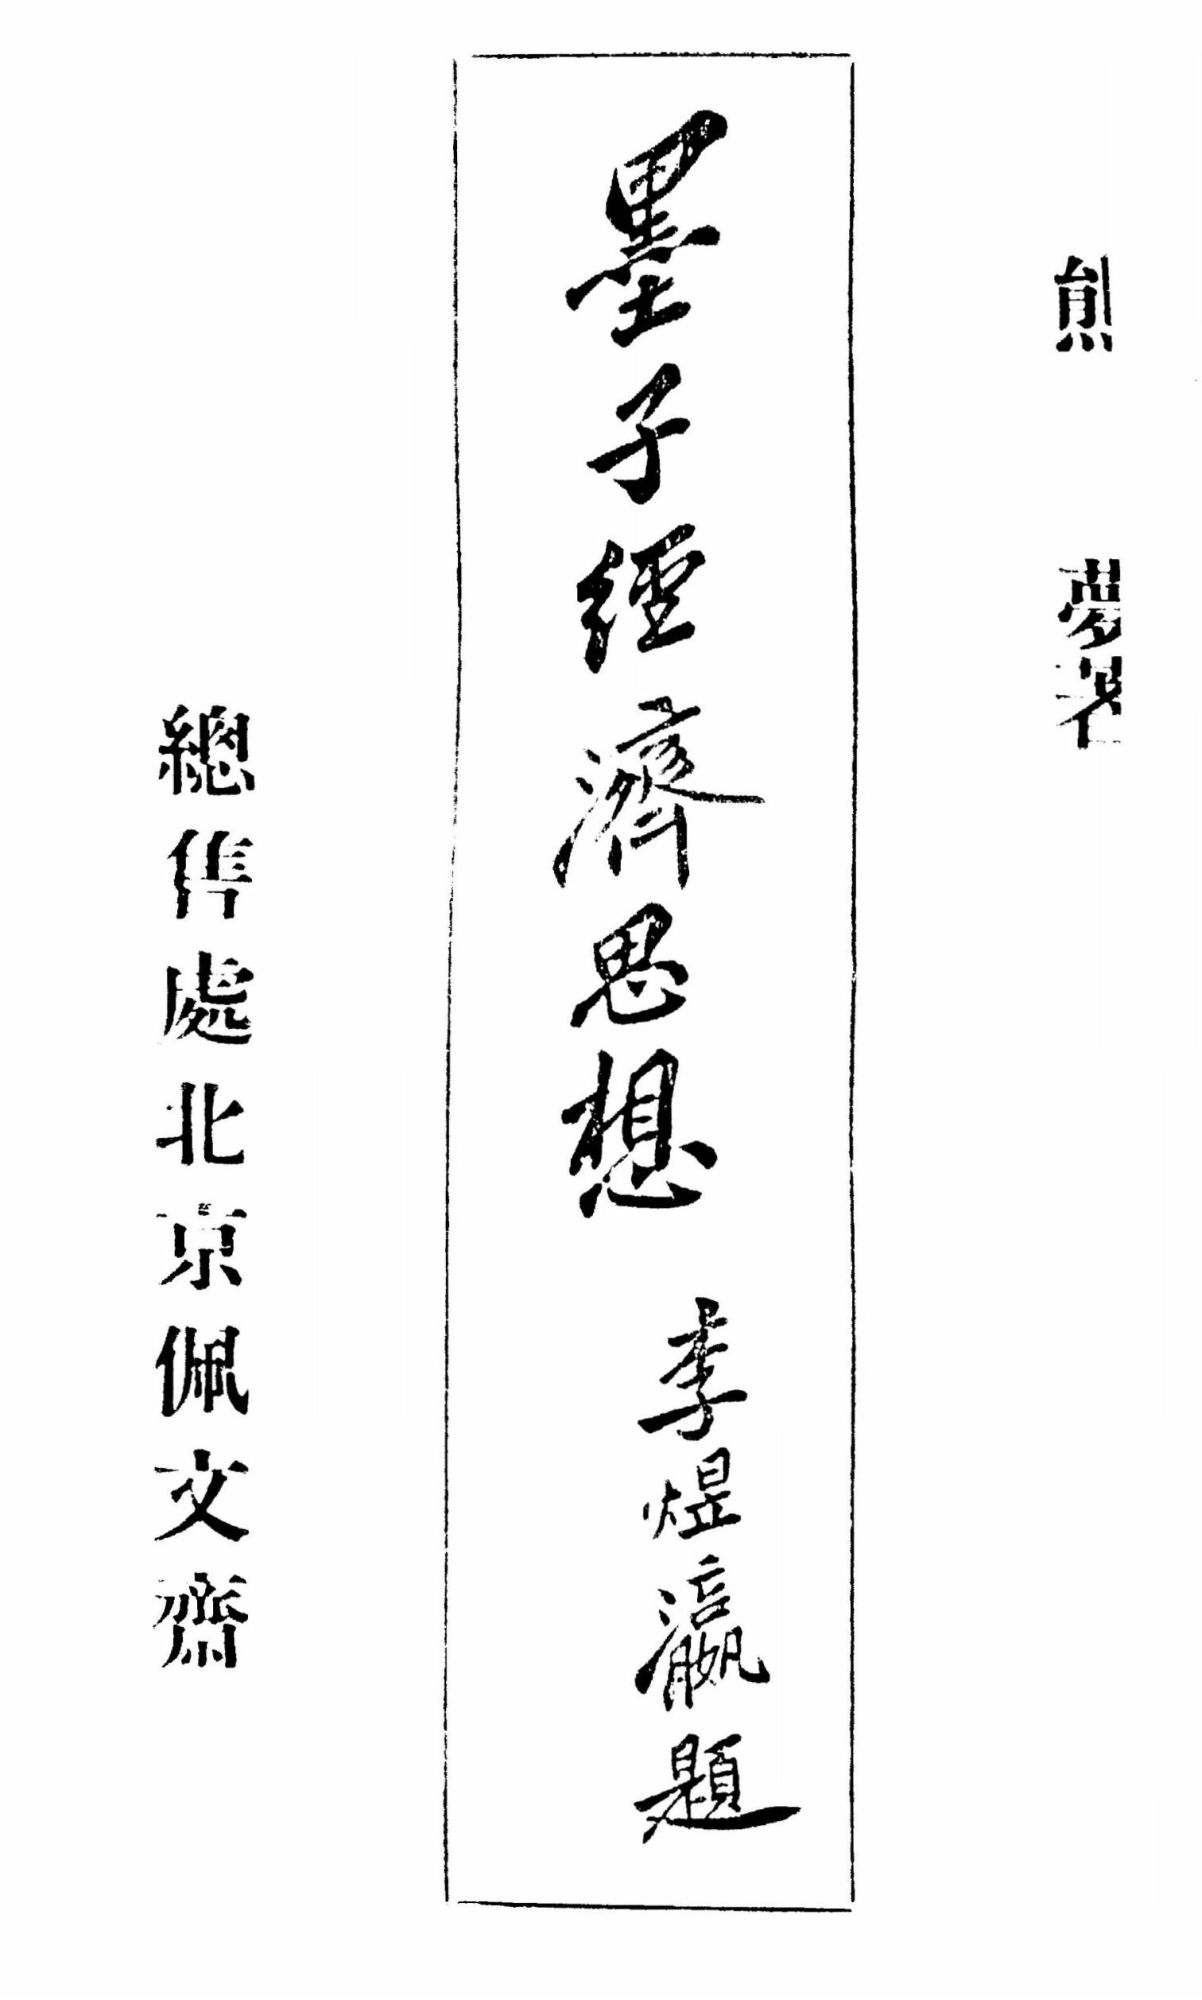 熊夢著
墨子經濟思想
李煜瀛題
總售處北京佩文齋